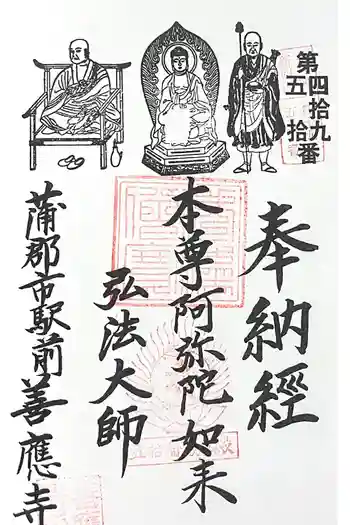 第四拾九
五拾番
奉納經
本尊阿弥陀如来
弘法大師
蒲郡市駅前善應寺